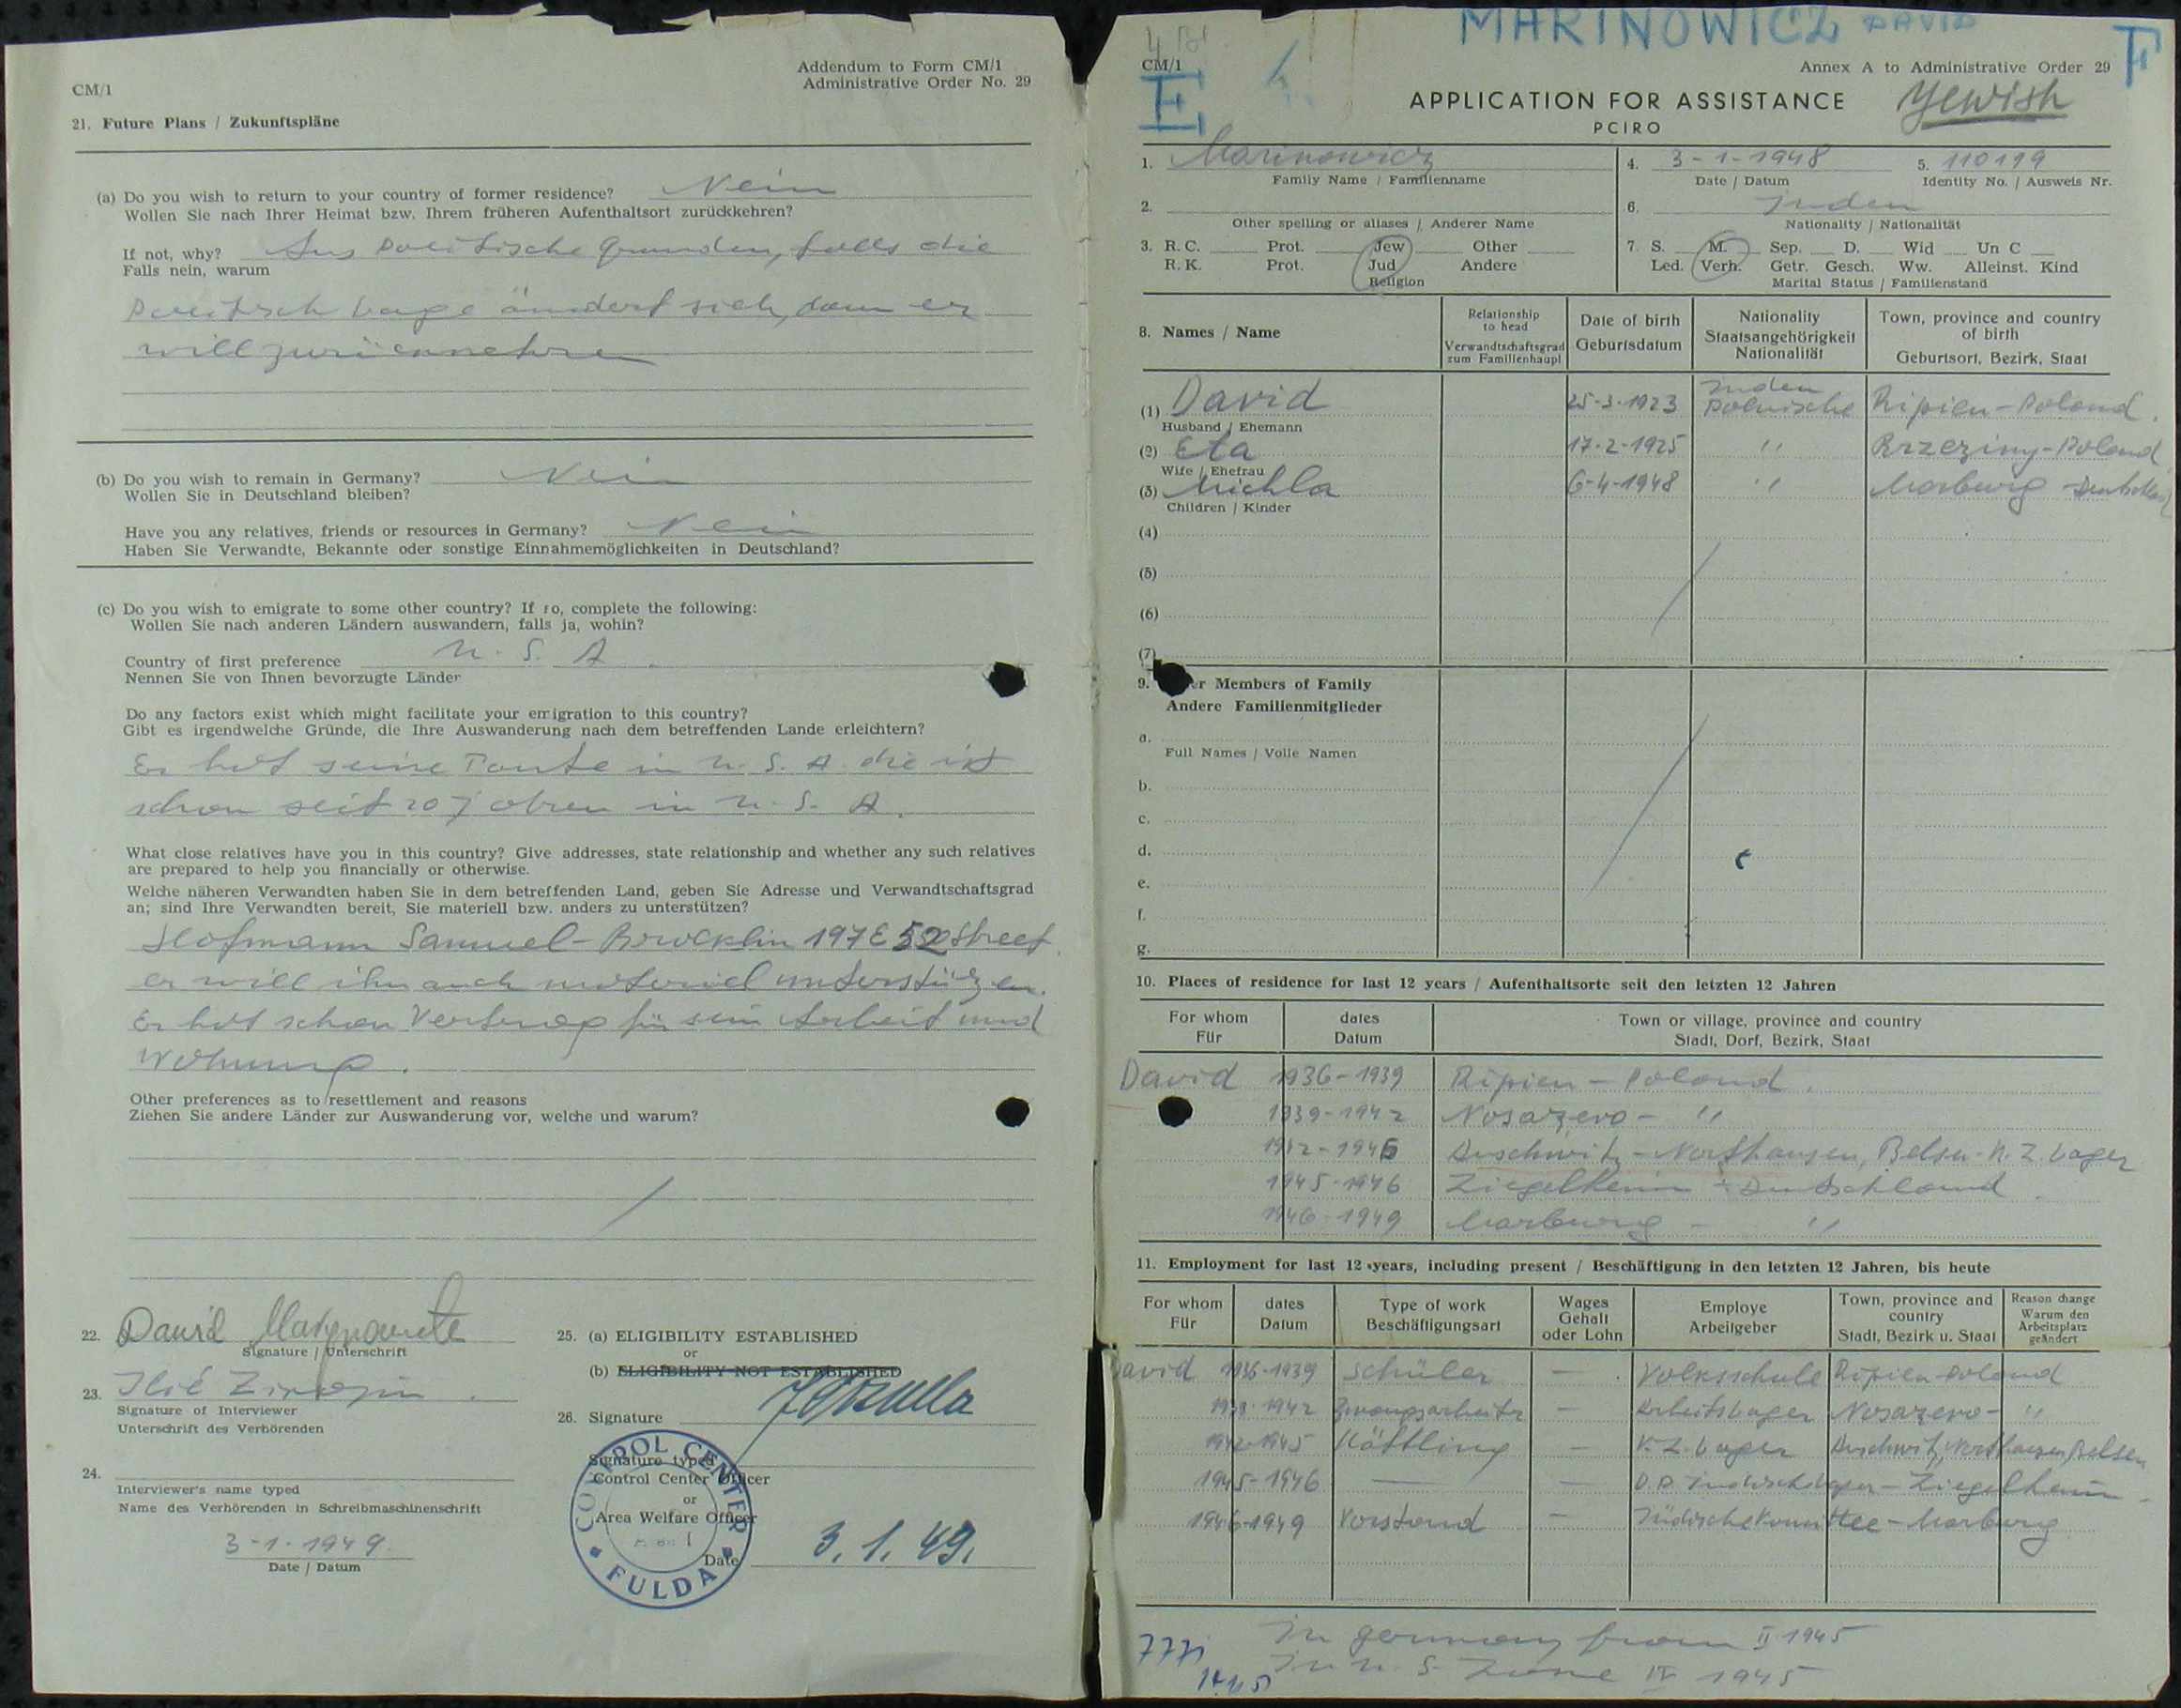 CM/1
Addendum to Form CM/1
Administrative Order No. 29
21. Future Plans / Zukunftspläne
(a) Do you wish to return to your country of former residence? Nein
Wollen Sie nach Ihrer Heimat bzw. Ihrem früheren Aufenthaltsort zurückkehren?
If not, why? Aus politische Grunden, falls die
Falls nein, warum
politisch Lage ändert sich, dann er
will
(b) Do you wish to remain in Germany? Nein
Wollen Sie in Deutschland bleiben?
Have you any relatives, friends or resources in Germany? Nein
Haben Sie Verwandte, Bekannte oder sonstige Einnahmemöglichkeiten in Deutschland?
(c) Do you wish to emigrate to some other country? If so, complete the following:
Wollen Sie nach anderen Ländern auswandern, falls ja, wohin?
Country of first preference U. S. A.
Nennen Sie von Ihnen bevorzugte Länder
Do any factors exist which might facilitate your emigration to this country?
Gibt es irgendwelche Gründe, die Ihre Auswanderung nach dem betreffenden Lande erleichtern?
Er hat seine Tante in U. S. A. die ist
schon seit 20 Jahren in U. S. A.
What close relatives have you in this country? Give addresses, state relationship and whether any such relatives
are prepared to help you financially or otherwise.
Welche näheren Verwandten haben Sie in dem betreffenden Land, geben Sie Adresse und Verwandtschaftsgrad
an; sind Ihre Verwandten bereit, Sie materiell bzw. anders zu unterstützen?
Hofmann Samuel - Brocklin 197 E 52 Street
er will ihn auch materiel unterstützen.
Er hat schon Vertrag für sein Arbeit und
Wohnung.
Other preferences as to resettlement and reasons
Ziehen Sie andere Länder zur Auswanderung vor, welche und warum?
22. David
Signature / Unterschrift
23.
Signature of Interviewer
Unterschrift des Verhörenden
24.
Interviewer's name typed
Name des Verhörenden in Schreibmaschinenschrift
3-1-1949
Date / Datum
25. (a) ELIGIBILITY ESTABLISHED
or
(b) ELIGIBILITY NOT ESTABLISHED
26. Signature
Signature typed
Control Center Officer
or
Area Welfare Officer
Date 3. 1. 49.
CONTROL CENTER
FULDA
MARINOWICZ DAVID
CM/1
E
F
Annex A to Administrative Order 29
APPLICATION FOR ASSISTANCE
Yewish
PCIRO
1. Marinowicz
Family Name / Familienname
4. 3-1-1948
Date / Datum
5. 110199
Identity No. / Ausweis Nr.
2.
Other spelling or aliases / Anderer Name
6. Juden
Nationality / Nationalität
3. R. C. Prot. Jew Other
R. K. Prot. Jud Andere
Religion
7. S. M. Sep. D. Wid Un C
Led. Verh. Getr. Gesch. Ww. Alleinst. Kind
Marital Status / Familienstand
8. Names / Name
Relationship to head
Verwandtschaftsgrad zum Familienhaupt
Date of birth
Geburtsdatum
Nationality
Staatsangehörigkeit
Nationalität
Town, province and country of birth
Geburtsort, Bezirk, Staat
Juden
(1) David 25-3-1923 Polnische Ripien - Poland.
Husband / Ehemann
(2) Eta 17-2-1925 " Brzeziny - Poland
Wife / Ehefrau
(3) Michla 6-4-1948 " Marburg - Deutschland
Children / Kinder
(4)
(5)
(6)
(7)
9. Members of Family
Andere Familienmitglieder
a.
Full Names / Volle Namen
b.
c.
d.
e.
f.
g.
10. Places of residence for last 12 years / Aufenthaltsorte seit den letzten 12 Jahren
For whom
Für
dates
Datum
Town or village, province and country
Stadt, Dorf, Bezirk, Staat
David 1936-1939 Ripien - Poland.
1939-1942 Nosazevo - "
1942-1945 Auschwitz - Northausen, Belsen - K. Z. Lager
1945-1946 Ziegelheim - Deutschland.
1946-1949 Marburg - "
11. Employment for last 12 years, including present / Beschäftigung in den letzten 12 Jahren, bis heute
For whom
Für
dates
Datum
Type of work
Beschäftigungsart
Wages
Gehalt
oder Lohn
Employe
Arbeitgeber
Town, province and country
Stadt, Bezirk u. Staat
Reason change
Warum den Arbeitsplatz geändert
David 1936-1939 Schüler - Volksschule Ripien Poland
1939-1942 Zwangsarbeiter - Arbeitslager Nosazevo - "
1942-1945 Häftling - K. Z. Lager Auschwitz, Northausen, Belsen
1945-1946 - - D. P. Lager - Ziegelheim
1946-1949 Vorstand - Jüdische Komittee - Marburg
In germany from II 1945
In U. S. Zone IV 1945